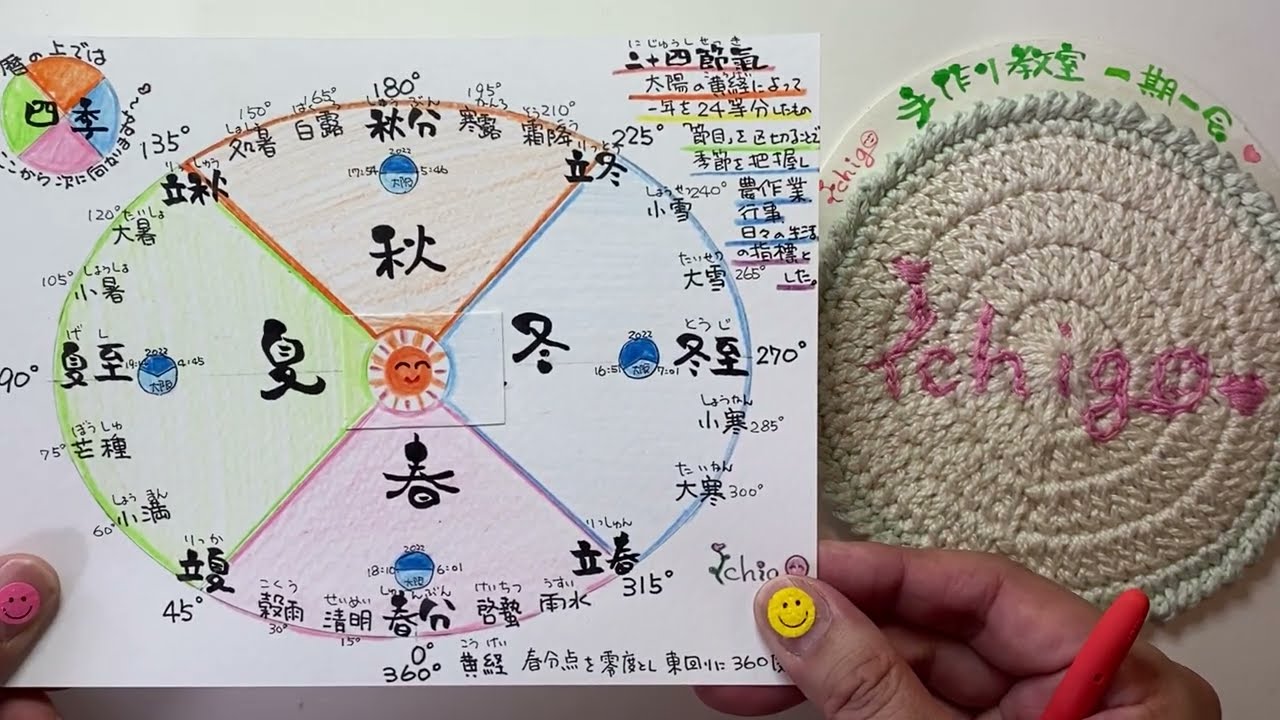 暦の上では
四季
ここから次に向かいます〜♡
にじゅうしせっき
二十四節氣
太陽の黄経によって
一年を24等分したもの
「節目」を区切ることで
季節を把握し
農作業
行事
日々の生活
の指標と
した。
180°
しゅうぶん
秋分
2022
17:54 太陽 5:46
165°
はくろ
白露
150°
しょしょ
処暑
195°
かんろ
寒露
210°
そうこう
霜降
135°
りっしゅう
立秋
225°
りっとう
立冬
120° たいしょ
大暑
105° しょうしょ
小暑
90°
げし
夏至
2022
4:45
太陽
75° ぼうしゅ
芒種
しょうまん
60° 小満
りっか
立夏
45°
しょうせつ 240°
小雪
たいせつ
大雪 265°
とうじ
冬至 270°
2022
16:51 太陽 7:01
しょうかん
小寒 285°
だいかん
大寒 300°
りっしゅん
立春
315°
秋
夏
冬
春
2022
18:10 太陽 6:01
こくう
穀雨
30°
せいめい
清明
15°
しゅんぶん
春分
けいちつ
啓蟄
うすい
雨水
0°
360°
こうけい
黄経 春分点を零度とし東回りに360度
Ichigo
手作り教室 一期一会
Ichigo
Ichigo